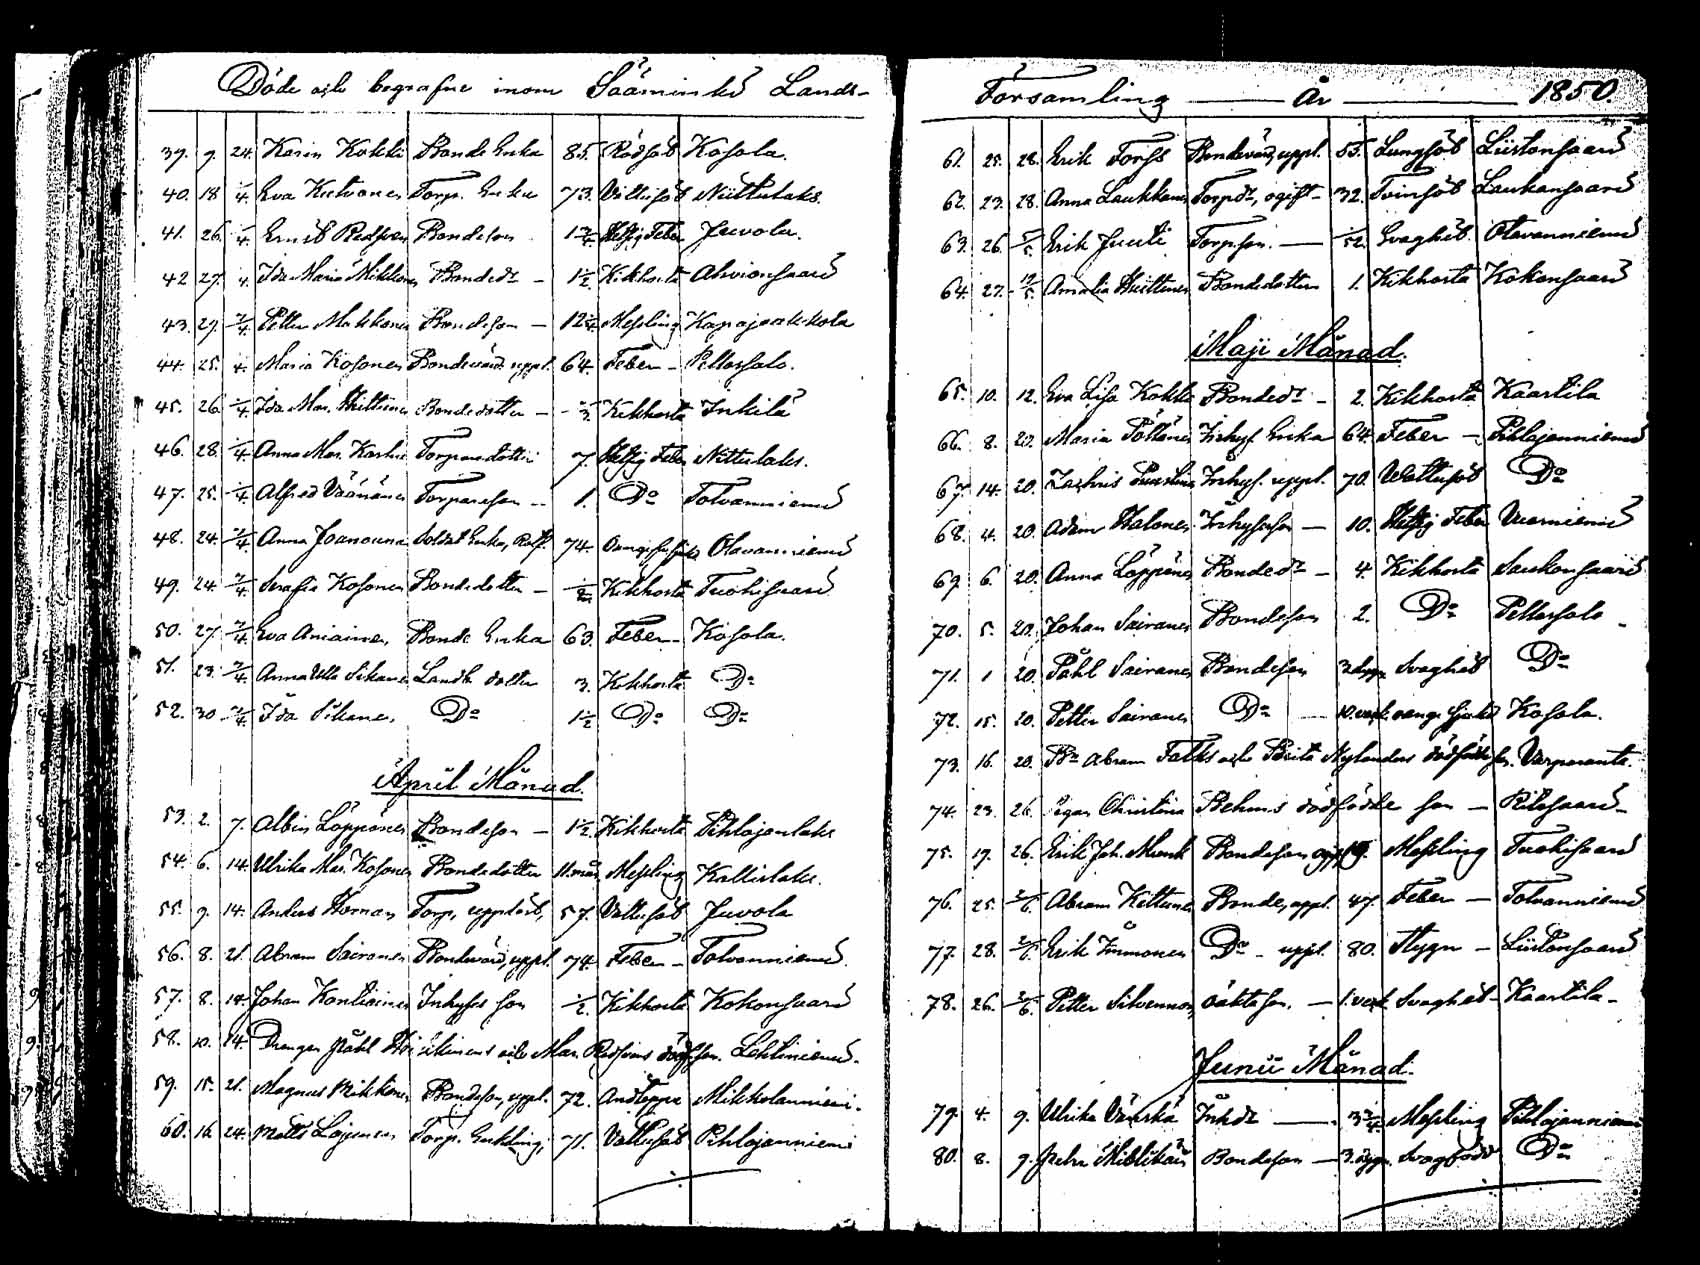 Döde och begrafne inom Sääminki Lands-
39. 9. 24. Karin Kokki Bonde Enka 85. Rödsot Kosola.
40. 18 1/4. Eva Kutvonen Torp. Enka 73. Vattusot Niittulaks.
41. 26 1/4 Ernst Redsven Bondeson 1 3/4 Hetsig Feber Juvola.
42 27. 4. Ida Maria Mikkonen Bonded:r - 1 1/2 Kikhosta Ahvionsaari
43. 29. 7/4 Petter Makkonen Bondeson - 12 Messling Kapajaakkola
44. 25. 4. Maria Kosonen Bondevärd. uppt. 64. Feber - Pellossalo.
45. 26 /4 Ida Mar. Hiltunen Bondedotter - 1/3 Kikhosta Inkilä
46. 28. /4 Anna Mar. Karhu Torparedotter 7. Hetsig Feber Nittulaks.
47. 25. /4 Alfred Väänänen Torpareson - 1. D:o Tolvanniemi
48. 24. 7/4 Anna Joanouna Soldat Enka, 74. Olavanniemi
49. 24. 7/4 Serafia Kosonen Bondedotter - 1/2 Kikhosta Tuohisaari
50. 27 7/4 Eva Aniainen Bonde Enka 63. Feber - Kosola.
51. 23. 7/4 Anna Ulla Sikanen Landb. dotter 3. Kikhosta D:o
52. 30 7/4 Ida Sikanen D:o 1 1/2 D:o D:o
April Månad.
53. 2. 7. Albin Löppönen Bondeson - 1 1/2 Kikhosta Pihlajanlaks
54. 6. 14. Ulrika Mar. Kosonen Bondedotter 11. mån Messling Kallislaks.
55. 9. 14. Anders Homan Torp. 57. Vattusot Juvola
56. 8. 21. Abram Sairanen Bondevärd, uppt. 74. Feber - Tolvanniemi.
57. 8. 14. Johan Kontiainen Inhyses son 1/2 Kikhosta Kokonsaari
58. 10. 14. Drengen Påhl och Mar. Redsvens dödf. son. Lehtiniemi.
59. 15. 21. Magnus Mikkonen Bondeson, uppt. 72. Andtäppa Mikkolanniemi.
60. 16. 24. Matts Loijonen Torp. Enkling, 71. Vattusot Pihlajanniemi
Församling — År — 1850.
61. 25. 28. Erik Forss Bondevärd, uppt. 55. Lungsot Liistonsaari
62. 23. 28. Anna Laukkanen Torpd:r, ogift - 32. Tvinsot Laukansaari
63. 26. 5/5 Erik Juuti Torpson. — /52 Svaghet Olavanniemi
64. 27. 12/5. Amalia Hiltunen Bondedotter 1. Kikhosta Kokonsaari
Maji Månad.
65. 10. 12. Eva Lisa Kokki Bonded:r - 2. Kikhosta Kaartila
66. 8. 20. Maria Pöllänen Inhys. Enka 64. Feber - Pihlajanniemi
67. 14. 20. Zachris Inhys. uppt. 70. Wattusot D:o
68. 4. 20. Adam Halonen Inhysson - 10. Hetsig Feber Vuorniemi
69. 6. 20. Anna Löppönen Bonded:r - 4. Kikhosta Saukonsaari
70. 5. 20. Johan Sairanen Bondeson 2. D:o Pellossalo
71. 1 20. Påhl Sairanen Bondeson 3 dygn Svaghet D:o
72. 15. 20. Petter Sairanen D:o - 10. veck. Kosola.
73. 16. 20. B:n Abram Falks och Brita Nylanders dödfödde son. Varparanta.
74. 23. 26. Pigan Christina Behms dödfödde son - Ritosaari
75. 19. 26. Erik Joh. Munk Bondeson 19. Messling Tuohisaari
76. 25. 2/6. Abram Kettunen Bonde, uppt. 47. Feber - Tolvanniemi
77. 28. 2/6. Erik Immonen D:o - uppt. 80. Stygn - Liistonsaari
78. 26. 2/6. Petter Silvennoinen oäkta son. - 1. veck Svaghet - Kaartila -
Junii Månad.
79. 4. 9. Ulrika Vänskä Inhd:r — 3 3/4 Messling Pihlajanniemi
80. 8. 9. Petr Bondeson - 3. dygn. Svagfödd D:o